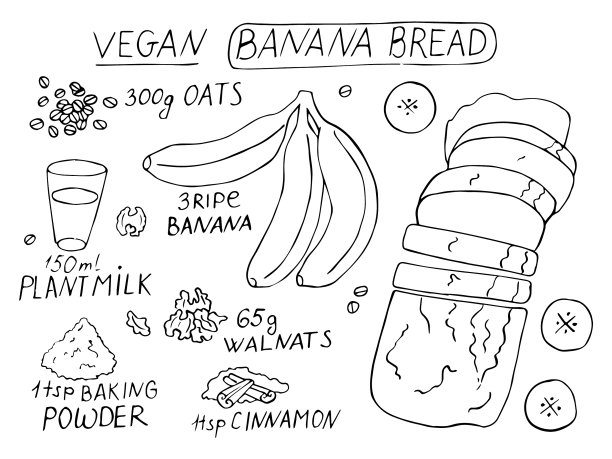 VEGAN BANANA BREAD
300g OATS
3RIPE
BANANA
150ml
PLANTMILK
65g
WALNATS
1tsp BAKING
POWDER
1tsp CINNAMON